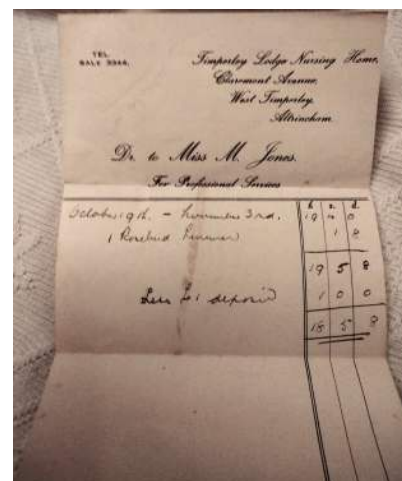 TEL.
SALE 3344.
Timperley Lodge Nursing Home,
Claremont Avenue,
West Timperley,
Altrincham.
Dr. to Miss M. Jones.
For Professional Services
£ s. d.
October 19th. - November 3rd. 19 4 0
1 Rosebud 1 8
19 5 8
Less £1 deposit 1 0 0
18 5 8